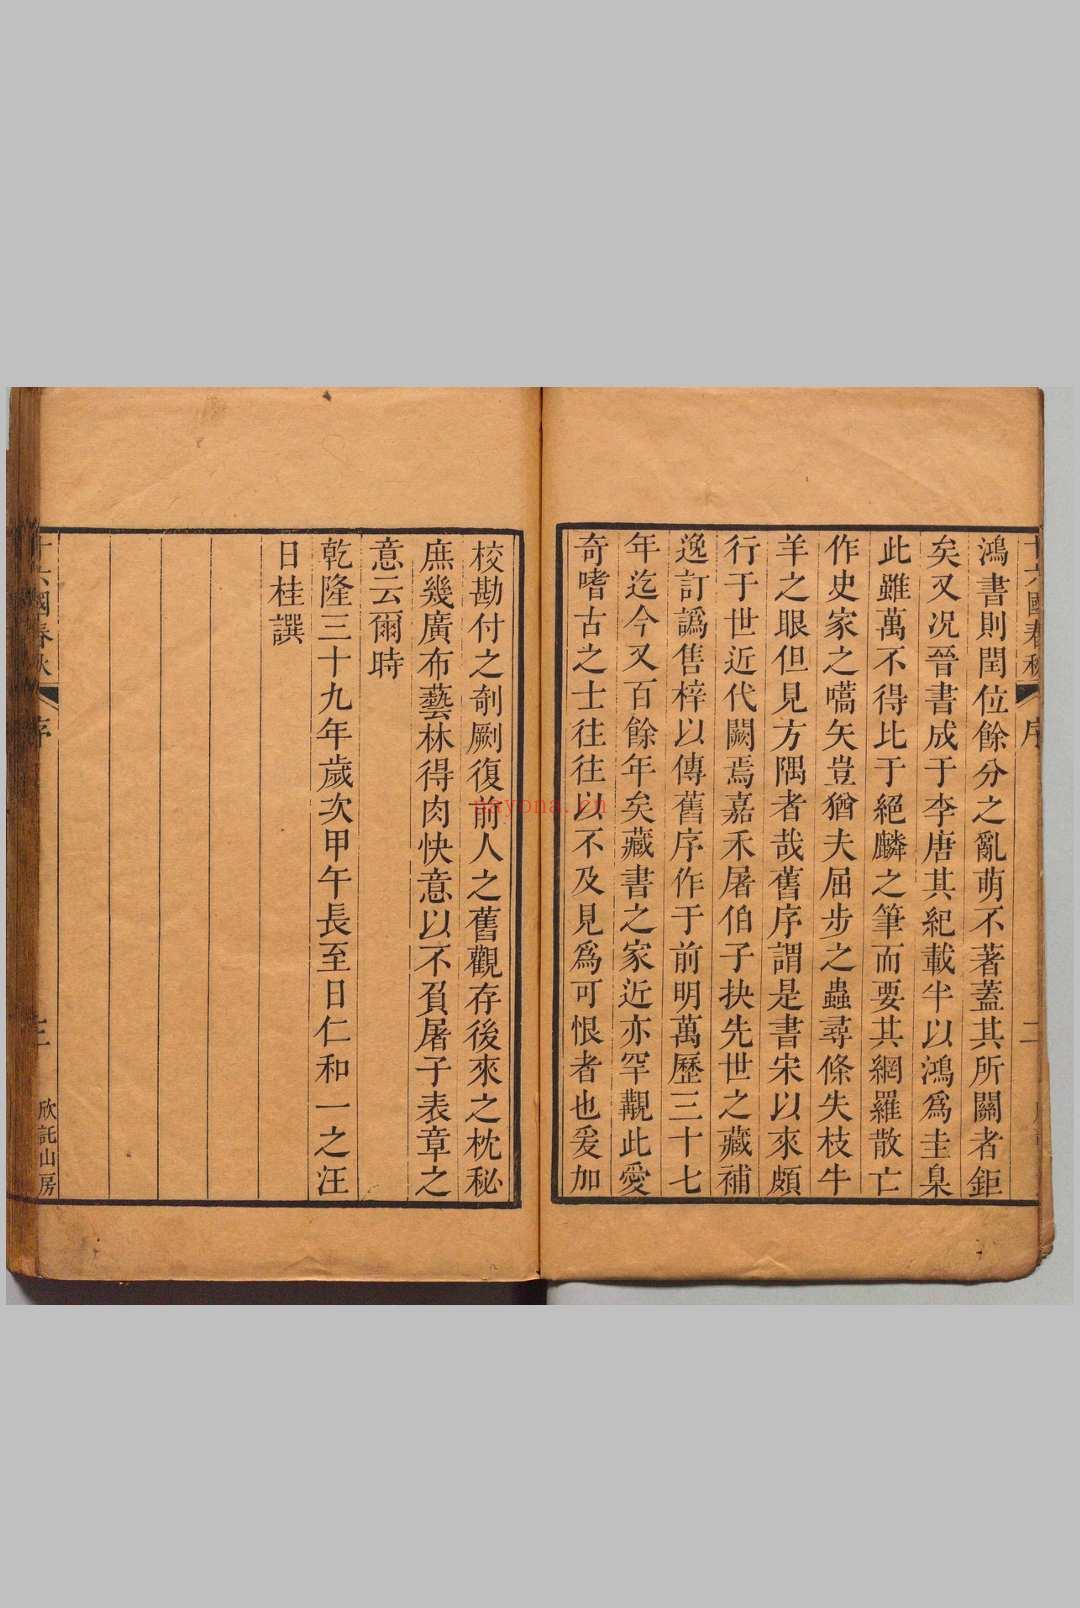 十六國春秋 序 二
鴻書則閏位餘分之亂萌不著蓋其所關者鉅
矣又况晉書成于李唐其紀載半以鴻爲圭臬
此雖萬不得比于絕麟之筆而要其網羅散亡
作史家之嚆矢豈猶夫屈步之蟲尋條失枝牛
羊之眼但見方隅者哉舊序謂是書宋以來頗
行于世近代闕焉嘉禾屠伯子抉先世之藏補
逸訂譌售梓以傳舊序作于前明萬歷三十七
年迄今又百餘年矣藏書之家近亦罕覯此愛
奇嗜古之士往往以不及見爲可恨者也爰加
校勘付之剞劂復前人之舊觀存後來之枕秘
庶幾廣布藝林得肉快意以不負屠子表章之
意云爾時
乾隆三十九年歲次甲午長至日仁和一之汪
日桂譔
十六國春秋 序 三 欣託山房
nayona.cn